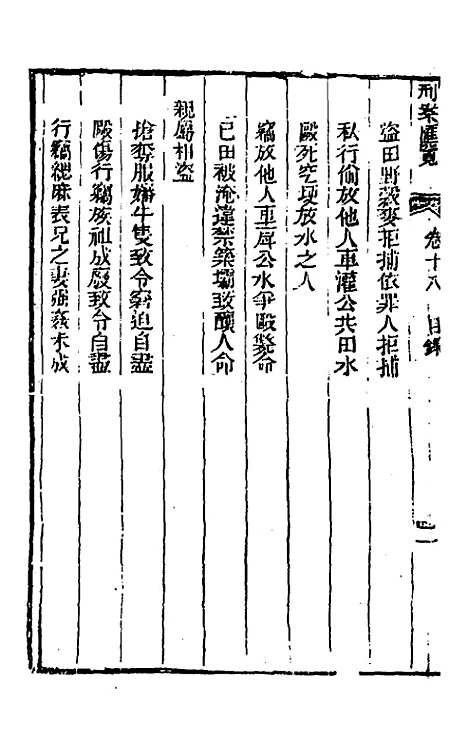 刑案匯覽 卷十八 目錄 二
盜田野穀麥拒捕依罪人拒捕
私行偷放他人車灌公共田水
毆死空埂放水之人
竊放他人車戽公水爭毆斃命
已田被淹違禁築壩致釀人命
親屬相盜
搶奪服嬸牛隻致令窘迫自盡
毆傷行竊族祖成廢致令自盡
行竊緦麻表兄之妻強姦未成